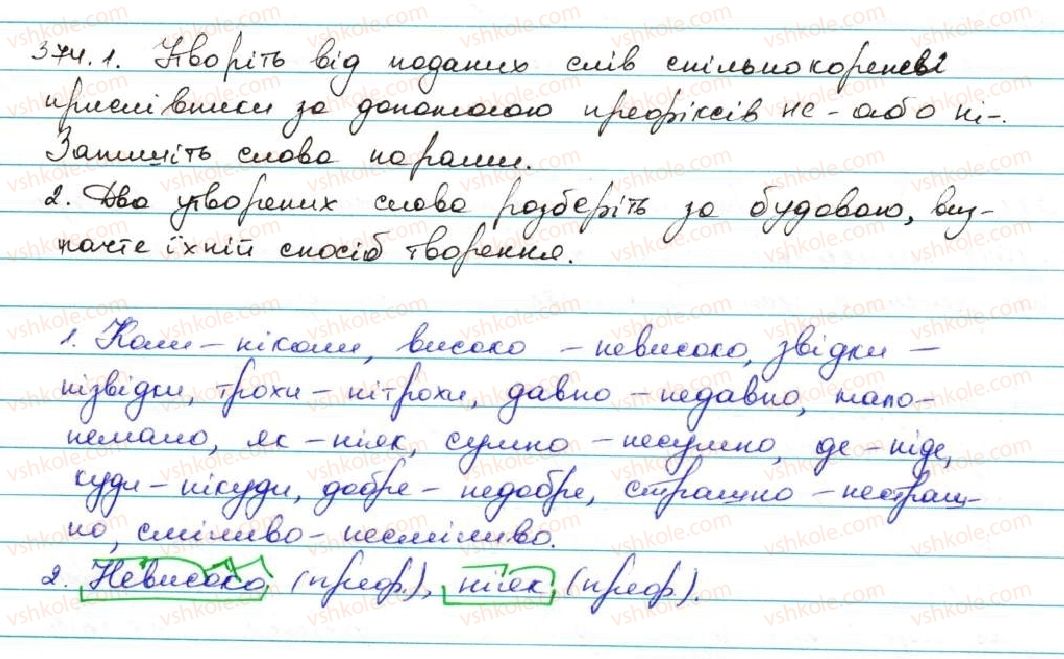 374.1. Утворіть від поданих слів спільнокореневі
прислівники за допомогою префіксів не- або ні-.
Запишіть слова парами.
2. Два утворених слова розберіть за будовою, виз-
начте їхній спосіб творення.
1. Коли – ніколи, високо – невисоко, звідки –
нізвідки, трохи – нітрохи, давно – недавно, мало –
немало, як – ніяк, сумно – несумно, де – ніде,
куди – нікуди, добре – недобре, страшно – нестраш-
но, сміливо – несміливо.
2. Невисоко (преф.), ніяк (преф.).